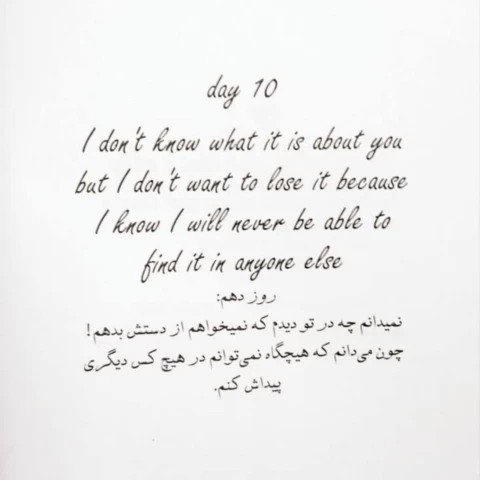 day 10
I don't know what it is about you
but I don't want to lose it because
I know I will never be able to
find it in anyone else
روز دهم:
نمیدانم چه در تو دیدم که نمیخواهم از دستش بدهم!
چون می‌دانم که هیچگاه نمی‌توانم در هیچ کس دیگری
پیداش کنم.